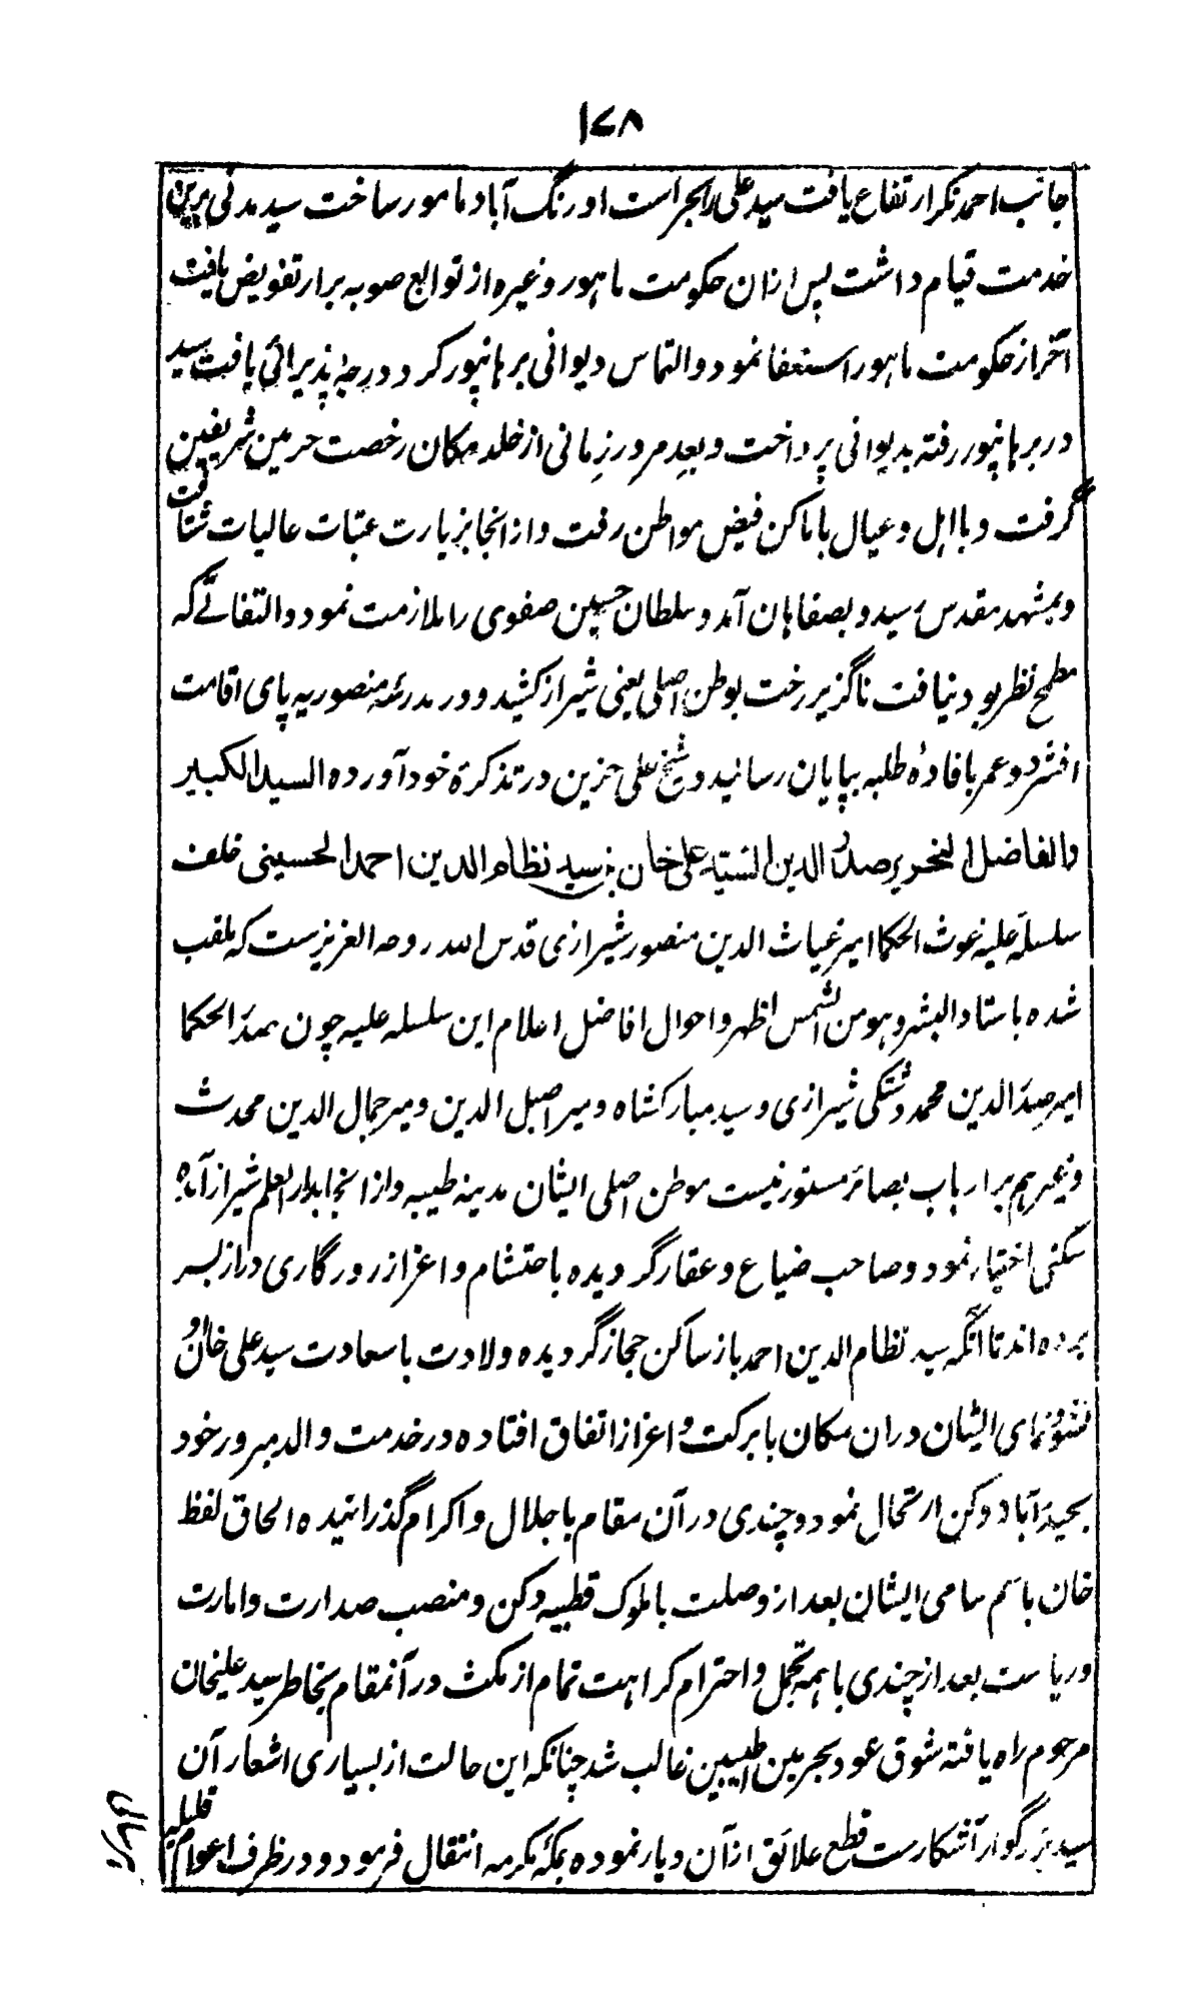 ۱۷۸
جانب احمد نگر ارتفاع یافت سید علی را بحراست اورنگ آباد مامور ساخت سید مدتی برین
خدمت قیام داشت پس ازان حکومت ماہور وغیرہ از توابع صوبہ برار تفویض یافت
آخر از حکومت ماہور استعفا نمود والتماس دیوانی برہانپور کرد درجۂ پذیرائی یافت سید
در برہانپور رفتہ بدیوانی پرداخت وبعد مرور زمانی از خلد مکان رخصت حرمین شریفین
گرفت و با اہل و عیال باماکن فیض مواطن رفت و از انجا بزیارت عتبات عالیات شتافت
و بمشہد مقدس رسید و بصفاہان آمد و سلطان حسین صفوی را ملازمت نمود والتفاتے کہ
مطمح نظر بود نیافت ناگزیر رخت بوطن اصلی یعنی شیراز کشید و در مدرسۂ منصوریہ پای اقامت
افشرد و عمر بافادۂ طلبہ بپایان رسانید و شیخ علی حزین در تذکرۂ خود آوردہ السید الکبیر
والفاضل النحریر صدر الدین السید علی خان بن سید نظام الدین احمد الحسینی خلف
سلسلہ علیہ غوث الحکما امیر غیاث الدین منصور شیرازی قدس اللہ روحہ العزیز ست کہ ملقب
شدہ باستاد البشر و ہو من الشمس اظہر و احوال افاضل اعلام این سلسلہ علیہ چون سید الحکما
امیر صدر الدین محمد دشتکی شیرازی و سید مبارکشاہ و میر اصیل الدین و میر جمال الدین محدث
وغیرہم بر ارباب بصائر مستور نیست موطن اصلی ایشان مدینہ طیبہ و از انجا بدار العلم شیراز آمدہ
سکنی اختیار نمود و صاحب ضیاع و عقار گردیدہ باحتشام و اعزاز روزگاری دراز بسر
بردہ اند تا آنکہ سید نظام الدین احمد باز ساکن حجاز گردیدہ ولادت باسعادت سید علی خان و
نشو و نمای ایشان دران مکان بابرکت و اعزاز اتفاق افتادہ در خدمت والد مبرور خود
بحیدرآباد دکن ارتحال نمود و چندی در آن مقام باجلال و اکرام گذرانیدہ الحاق لفظ
خان باسم سامی ایشان بعد از وصلت باملوک قطبیہ دکن و منصب صدارت و امارت
و ریاست بعد از چندی باہمہ تجمل و احترام کراہت تمام از مکث در آنمقام بخاطر سید علیخان
مرحوم راہ یافتہ شوق عود بحرمین اطیبین غالب شد چنانکہ این حالت از بسیاری اشعار آن
سید بزرگوار آشکارست قطع علائق ازان دیار نمودہ بمکۂ مکرمہ انتقال فرمود و در ظرف اعوام قلیلہ